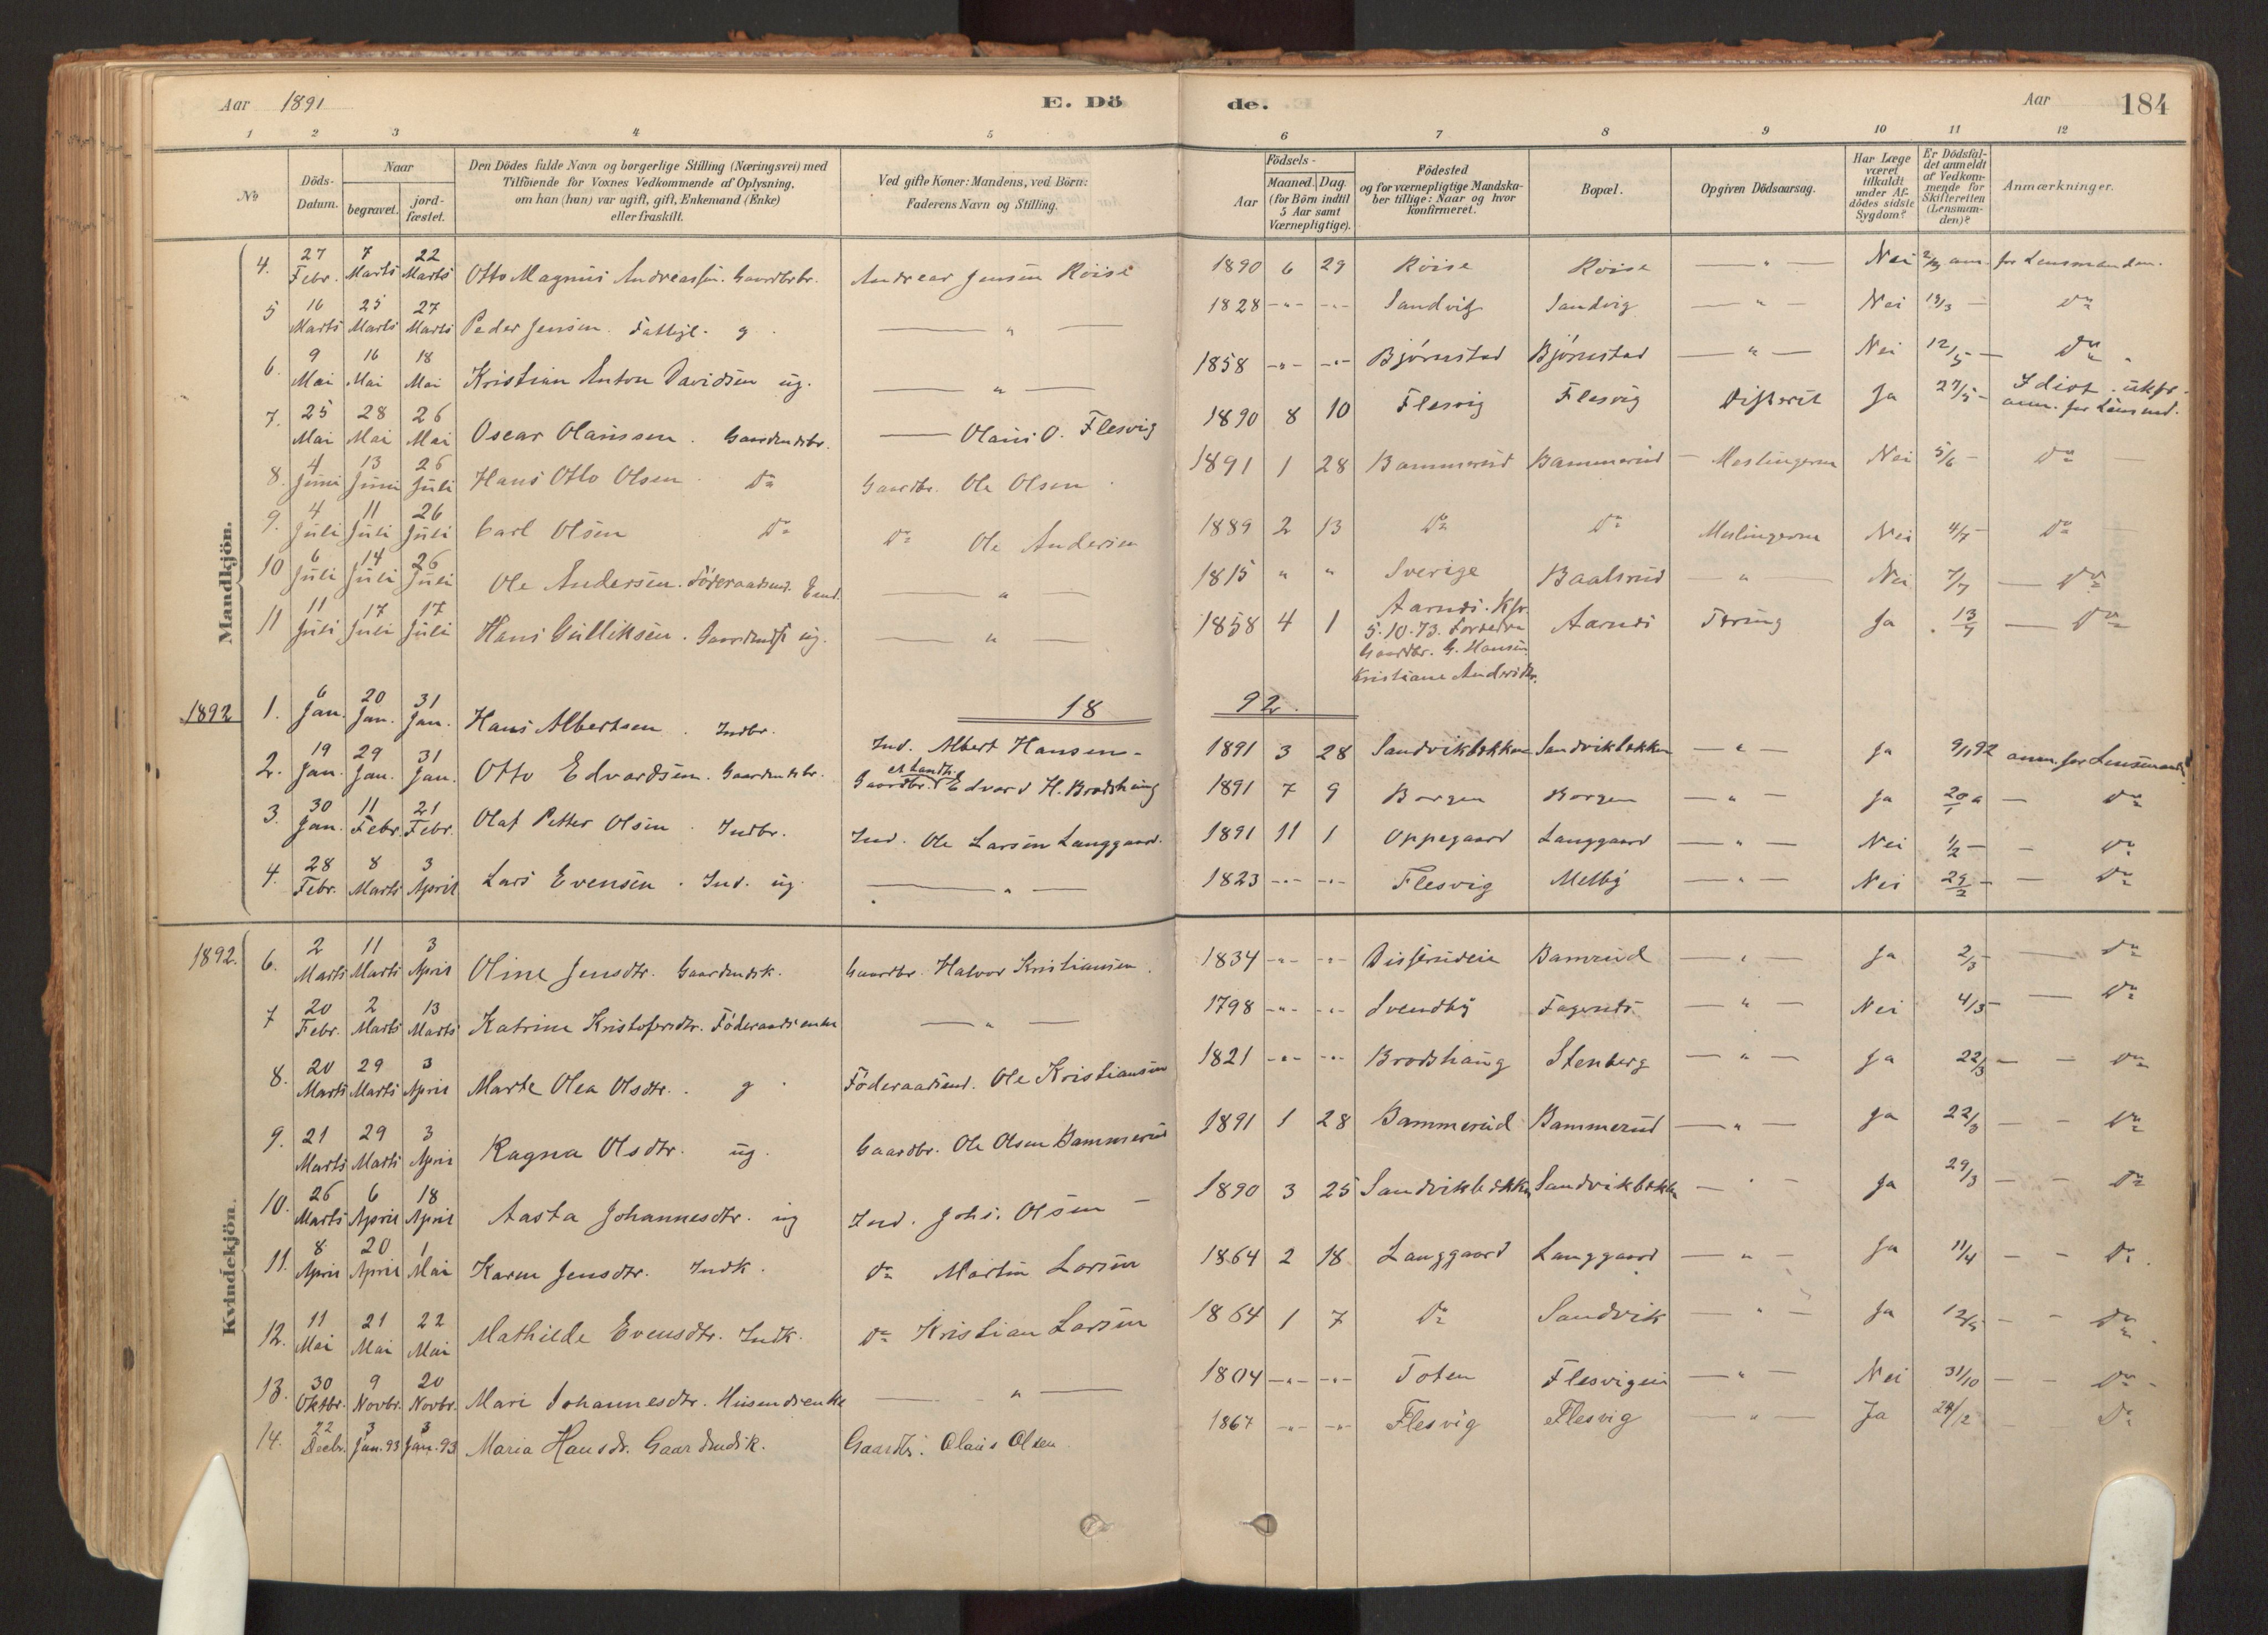 Aar 1891 E. Dö de. Aar 184
1 2 3 4 5 6 7 8 9 10 11 12
No
Döds-Datum.
Naar begravet. jord-fæstet.
Den Dödes fulde Navn og borgerlige Stilling (Næringsvei) med Tilföiende for Voxnes Vedkommende af Oplysning, om han (hun) var ugift, gift, Enkemand (Enke) eller fraskilt.
Ved gifte Koner: Mandens, ved Börn: Faderens Navn og Stilling.
Födsels-
Aar Maaned. Dag. (for Börn indtil 5 Aar samt Værnepligtige).
Födested og for værnepligtige Mandskaber tillige: Naar og hvor konfirmeret.
Bopæl.
Opgiven Dödsaarsag.
Har Læge været tilkaldt under Afdödes sidste Sygdom?
Er Dödsfaldet anmeldt af Vedkommende for Skifteretten (Lensmanden)?
Anmærkninger.
Mandkjön.
4. 27 Febr. 7 Marts 22 Marts Otto Magnus Andreassen. Gaardbrbr. Andreas Jensen Röise 1890 6 29 Röise Röise — " — Nei 2/3 anm. for Lensmanden.
5 16 Marts 25 Marts 27 Marts Peder Jensen. Fattigl. g. — " — 1828 -"- -"- Sandvig Sandvig — " — Nei 19/3 — Do
6. 9 Mai 16 Mai 18 Mai Kristian Anton Davidsen ug. — " — 1858 -"- -"- Bjørnstad Bjørnstad — " — Nei 12/5 — Do
7. 25 Mai 28 Mai 26 Mai Oscar Olaussen. Gaardmdsbr. — Olaus O. Flesvig 1890 8 10 Flesvig Flesvig Difterit Ja 27/5 — Idiot. anm. for Lensmd.
8. 4 Juni 13 Juni 26 Juli Hans Otto Olsen. Do Gaardbr. Ole Olsen 1891 1 28 Bammerud Bammerud — Meslingerne Nei 5/6 — Do
9. 4 Juli 11 Juli 26 Juli Carl Olsen Do Do Ole Andersen 1889 2 13 Do Do Meslingerne Nei 4/7 — Do
10 6 Juli 14 Juli 26 Juli Ole Andersen. Föderaadsmd. Emd. — " — 1815 " " Sverige Baalsrud — " — Nei 7/7 — Do
11 11 Juli 17 Juli 17 Juli Hans Gulliksen. Gaardmds ug. — " — 1858 4 1 Aarnes. Kfr. 5.10.73. Forældre Gaardbr. G. Hansen Kristiane Andersdtr. Aarnes Tæring Ja 13/7 — Do
18 92.
1892 1. 6 Jan. 20 Jan. 31 Jan. Hans Albertsen. Indbr. Ind. Albert Hansen — 1891 3 28 Sandvikbækken Sandvikbækken — " — Ja 9/1 92 anm. for Lensmand
2. 19 Jan. 29 Jan. 31 Jan. Otto Edvardsen. Gaardmdsbr. Gaardbr. Edvard H. Brødshaug 1891 7 9 Borgen Borgen — " — Ja 20/1 — Do
3. 30 Jan. 11 Febr. 21 Febr. Olaf Petter Olsen. Indbr. Ind. Ole Larsen Langgaard. 1891 11 1 Oppegaard Langgaard — " — Nei 1/2 — — Do
4. 28 Febr. 8 Marts 3 April Lars Evensen. Ind. ug. — " — 1823 -"- -"- Flesvig Melby — " — Nei 29/2 — — Do
Kvindekjön.
1892. 6. 2 Marts 11 Marts 3 April Oline Jensdtr. Gaardmdsk. Gaardbr. Halvor Kristiansen. 1834 -"- -"- Bamrud — " — Ja 2/3 — Do
7 20 Febr. 2 Marts 13 Marts Katrine Kristofersdtr. Föderaadsenke — " — 1798 -"- -"- Svendby — " — Nei 4/3 — Do
8. 20 Marts 29 Marts 3 April Marte Olea Olsdtr. g. Föderaadsmd. Ole Kristiansen 1821 -"- -"- Brødshaug Stenberg — " — Ja 22/3 — — Do
9. 21 Marts 29 Marts 3 April Ragna Olsdtr. ug. Gaardbr. Ole Olsen Bammerud 1891 1 28 Bammerud Bammerud — " — Ja 22/3 — — Do
10. 26 Marts 6 April 18 April Aasta Johannesdtr. ug Ind. Johs. Olsen — 1890 3 25 Sandvikbækken Sandvikbækken — " — Ja 29/3 — — Do
11. 8 April 20 April 1 Mai Karen Jensdtr. Indk. Do Martin Larsen 1864 2 18 Langgaard Langgaard — " — Ja 11/4 — — Do
12. 11 Mai 21 Mai 22 Mai Mathilde Evensdtr. Indk. Do Kristian Larsen 1864 1 7 Do Sandvik — " — Ja 12/5 — — Do
13. 30 Oktbr. 9 Novbr. 20 Novbr. Mari Johannesdtr. Husmdsenke — " — 1804 -"- -"- Toten Flesvigeie — " — Nei 31/10 — — Do
14. 22 Decbr. 3 Jan. 93 3 Jan. 93 Maria Hansdtr. Gaardmdsk. Gaardbr. Olaus Olsen 1867 -"- -"- Flesvig Flesvig — " — Ja 24/12 — Do